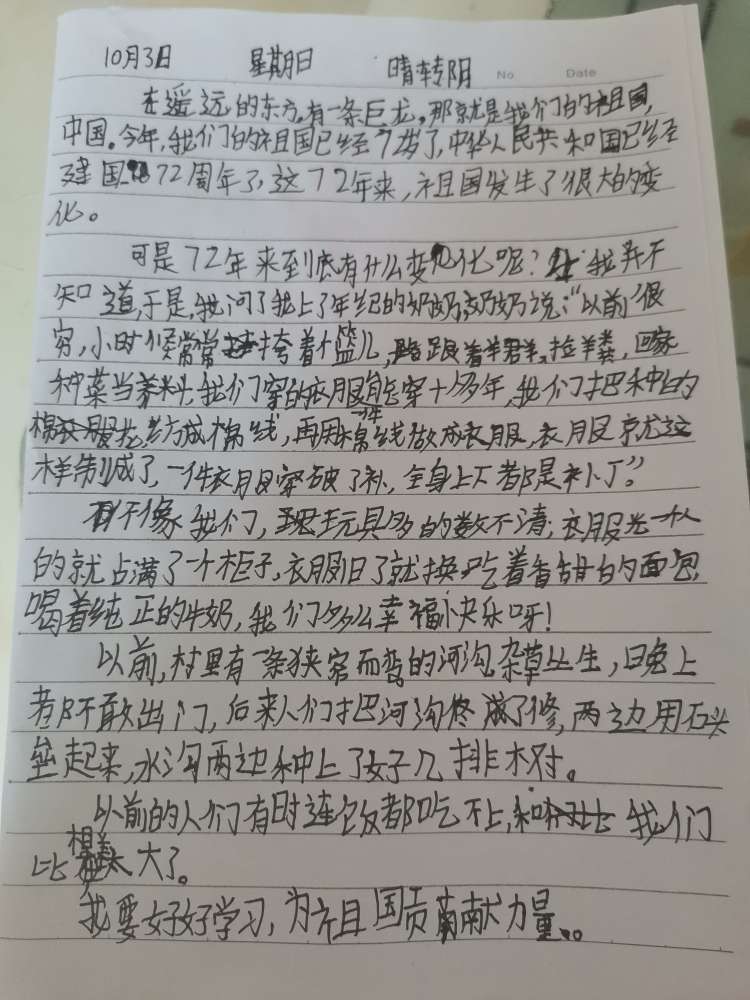 10月3日 星期日 晴转阴 No Date
在遥远的东方,有一条巨龙。那就是我们的祖国,
中国。今年,我们的祖国已经7岁了,中华人民共和国已经
建国72周年了,这72年来,祖国发生了很大的变
化。
可是72年来到底有什么变化呢?我并不
知道,于是,我问了我上了年纪的奶奶,奶奶说:“以前很
穷,小时候常常挎着个篮儿,跟着羊群,捡羊粪,回家
种菜当养料,我们穿的衣服能穿十多年,我们把种的
棉花纺成棉线,再用棉线做成一件衣服,衣服就这
样制成了,一件衣服穿破了补,全身上下都是补丁。”
不像我们,玩具多的数不清;衣服光一人
的就占满了一个柜子,衣服旧了就换,吃着香甜的面包,
喝着纯正的牛奶,我们多么幸福快乐呀!
以前,村里有一条狭窄而弯的河沟,杂草丛生,晚上
都不敢出门,后来人们把河沟修了修,两边用石头
垒起来,水沟两边种上了好几排树。
以前的人们有时连饭都吃不上,和我们
比相差太大了。
我要好好学习,为祖国贡献力量。